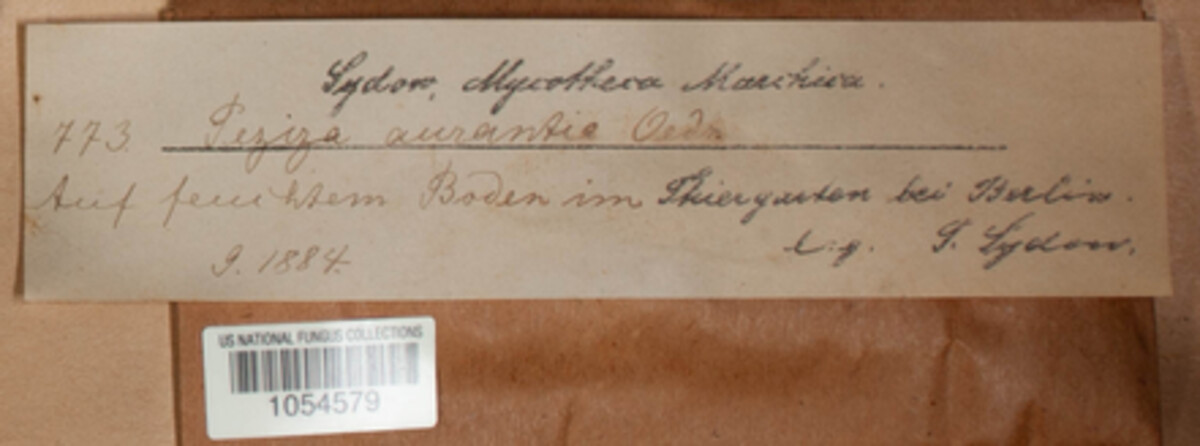 Sydow, Mycotheca Marchica.
773. Peziza aurantia Oed.
Auf feuchtem Boden im Thiergarten bei Berlin.
9. 1884. leg. P. Sydow.
US NATIONAL FUNGUS COLLECTIONS
1054579